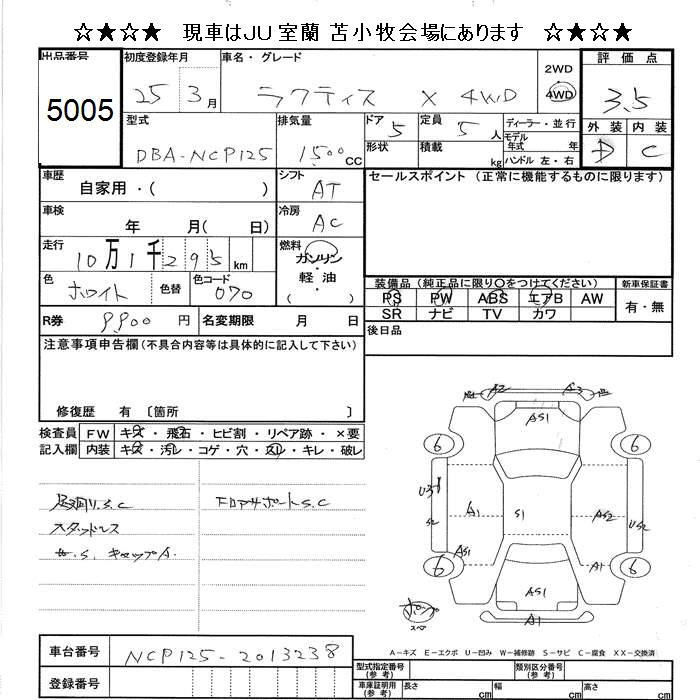 ☆★☆★ 現車はJU室蘭 苫小牧会場にあります ☆★☆★
出品番号 初度登録年月 車名・グレード 2WD 評価点
5005 25 3月 ラクティス X 4WD 4WD 3.5
型式 排気量 ドア 定員 ディーラー・並行 外装 内装
DBA-NCP125 1500CC 5 5人 モデル年式 年 D C
形状 積載 kg ハンドル 左・右
車歴 自家用・( ) シフト AT セールスポイント (正常に機能するものに限ります)
車検 年 月( 日) 冷房 AC
走行 10万1千295km 燃料 ガソリン・軽油 ( )
色 ホワイト 色替 色コード 070 装備品(純正品に限り○をつけてください) 新車保証書
PS PW ABS エアB AW 有・無
SR ナビ TV カワ
R券 9,900円 名変期限 月 日 後日品
注意事項申告欄(不具合内容等は具体的に記入して下さい)
修復歴 有 〔箇所 〕
検査員 FW キズ・飛石・ヒビ割・リペア跡・×要
記入欄 内装 キズ・汚レ・コゲ・穴・スレ・キレ・破レ
足廻り.S.C フロアサポートS.C
スタッドレス
キャップA.
A2 A3
AS1
6 6
U3 A1 S1 AS2 US2
S2
AS1 A1
6 6
AS1
A1
A-キズ E-エクボ U-凹み W-補修跡 S-サビ C-腐食 XX-交換済
車台番号 NCP125-2013238
型式指定番号(参考) 類別区分番号(参考)
登録番号 車庫証明用(参考) 長さ cm 幅 cm 高さ cm